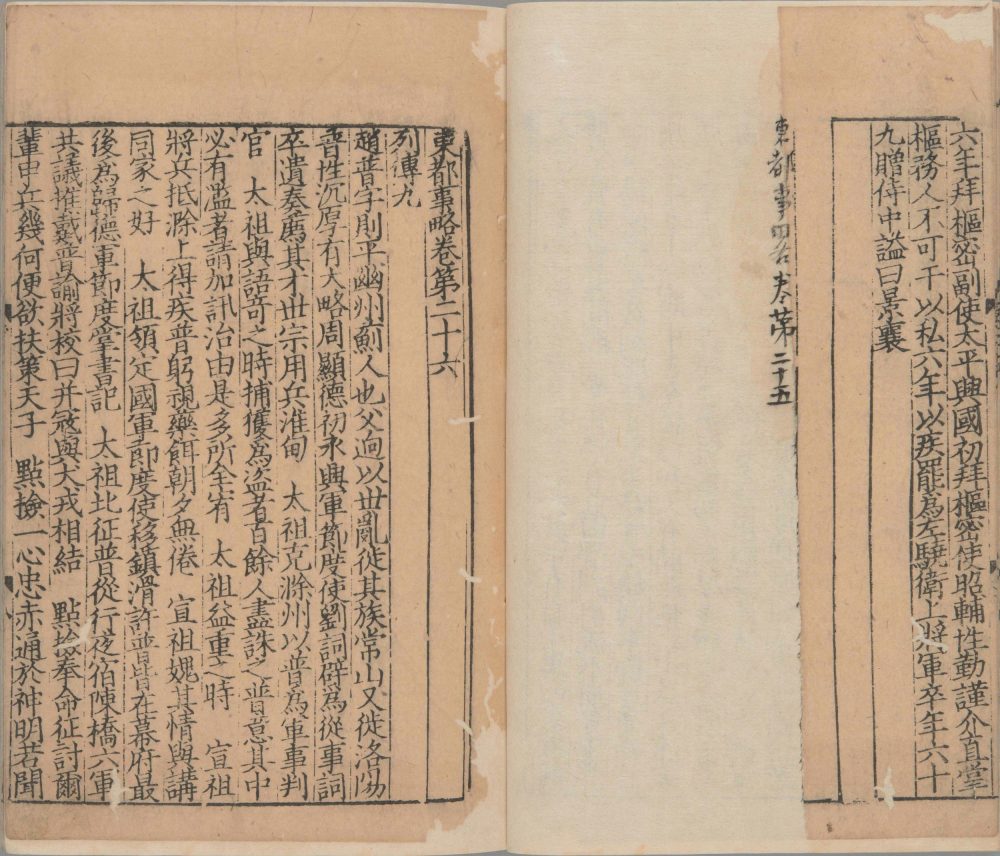 六年拜樞密副使太平興國初拜樞密使昭輔性勤謹介直掌
樞務人不可干以私六年以疾罷為左驍衛上將軍卒年六十
九贈侍中謚曰景襄
東都事畧卷第二十五
東都事略卷第二十六
列傳九
趙普字則平幽州薊人也父迥以世亂徙其族常山又徙洛陽
普性沉厚有大略周顯德初永興軍節度使劉詞辟為從事詞
卒遺奏薦其才世宗用兵淮甸 太祖克滁州以普為軍事判
官 太祖與語奇之時捕獲為盜者百餘人盡誅之普意其中
必有濫者請加訊治由是多所全宥 太祖益重之時 宣祖
將兵抵滁上得疾普躬視藥餌朝夕無倦 宣祖媿其情與講
同家之好 太祖領定國軍節度使移鎮滑許普皆在幕府最
後為歸德軍節度掌書記 太祖北征普從行夜宿陳橋六軍
共議推戴普諭將校曰并冦與犬戎相結 點撿奉命征討爾
輩申兵幾何便欲扶策天子 點撿一心忠赤通於神明若聞